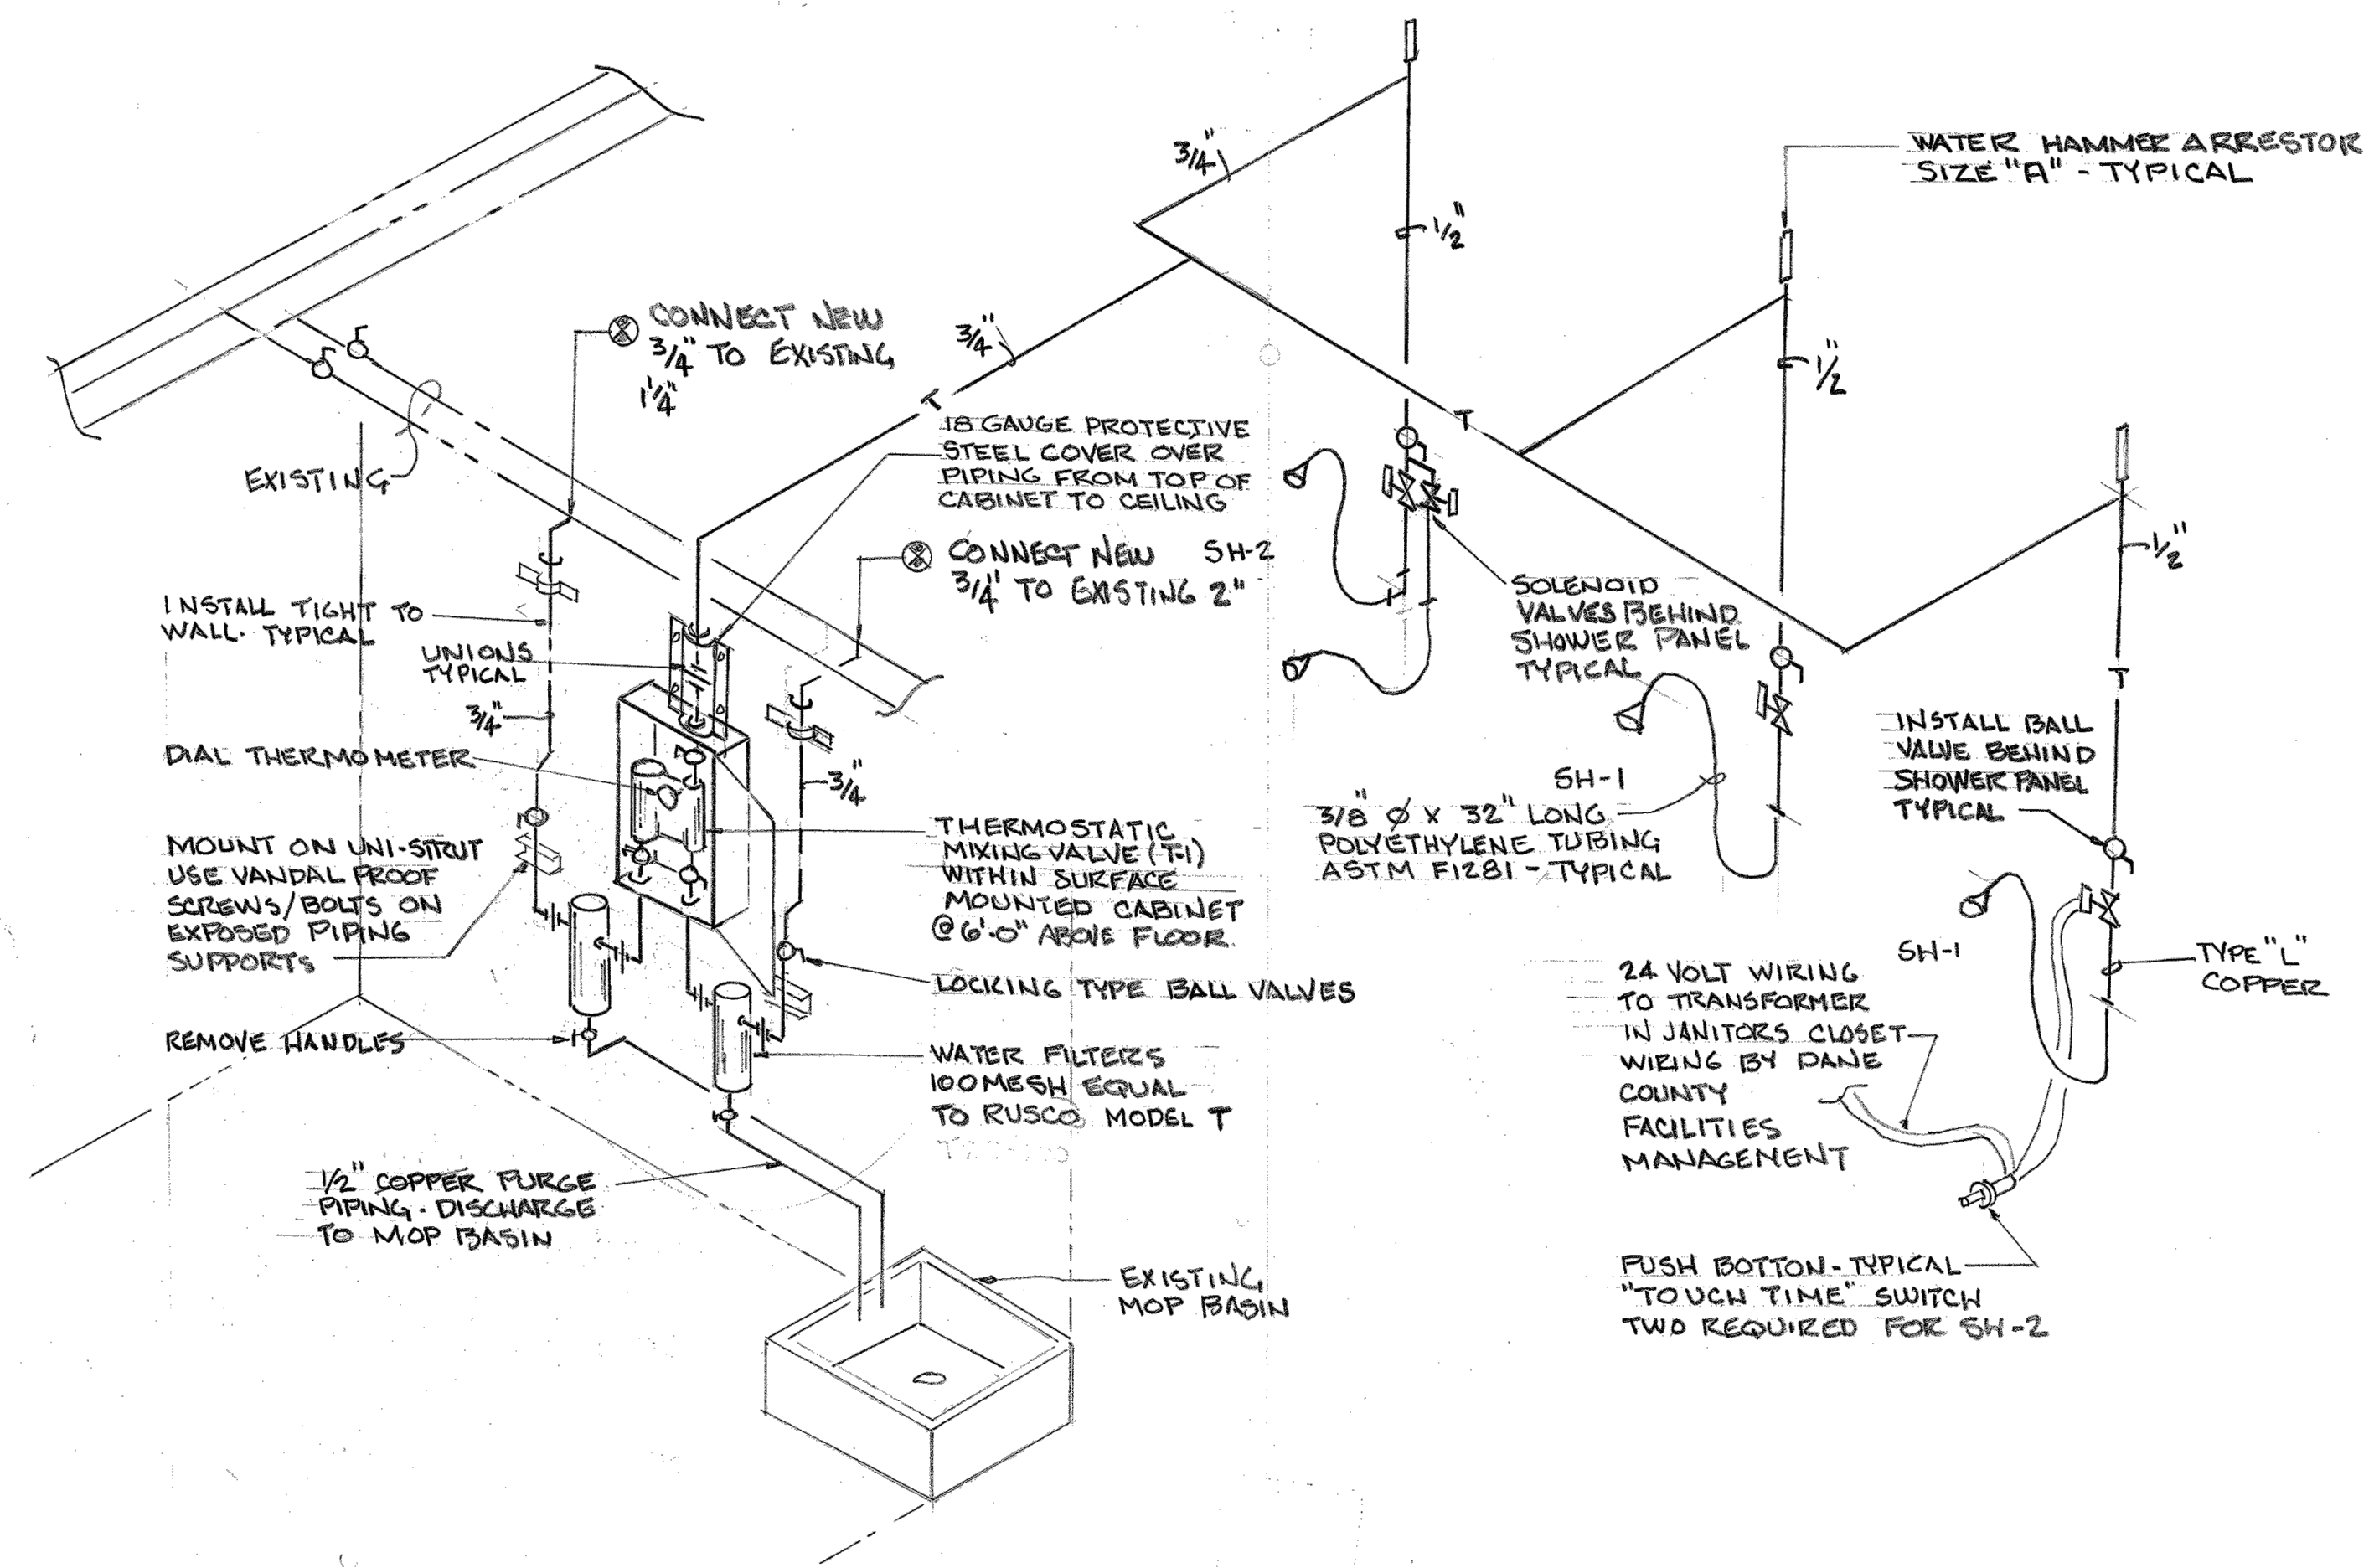 3/4"
1/2"
WATER HAMMER ARRESTOR
SIZE "A" - TYPICAL
CONNECT NEW
3/4" TO EXISTING
1 1/4"
3/4"
T
1/2"
18 GAUGE PROTECTIVE
STEEL COVER OVER
PIPING FROM TOP OF
CABINET TO CEILING
T
EXISTING
CONNECT NEW
3/4" TO EXISTING 2"
SH-2
1/2"
INSTALL TIGHT TO
WALL. TYPICAL
UNIONS
TYPICAL
SOLENOID
VALVES BEHIND
SHOWER PANEL
TYPICAL
T
3/4"
DIAL THERMOMETER
3/4"
INSTALL BALL
VALVE BEHIND
SHOWER PANEL
TYPICAL
SH-1
3/8" Ø X 32" LONG
POLYETHYLENE TUBING
ASTM F1281 - TYPICAL
MOUNT ON UNI-STRUT
USE VANDAL PROOF
SCREWS/BOLTS ON
EXPOSED PIPING
SUPPORTS
THERMOSTATIC
MIXING VALVE (T-1)
WITHIN SURFACE
MOUNTED CABINET
@ 6'-0" ABOVE FLOOR.
SH-1
TYPE "L"
COPPER
LOCKING TYPE BALL VALVES
24 VOLT WIRING
TO TRANSFORMER
IN JANITORS CLOSET
WIRING BY DANE
COUNTY
FACILITIES
MANAGEMENT
REMOVE HANDLES
WATER FILTERS
100 MESH EQUAL
TO RUSCO MODEL T
1/2" COPPER PURGE
PIPING. DISCHARGE
TO MOP BASIN
EXISTING
MOP BASIN
PUSH BOTTON - TYPICAL
"TOUCH TIME" SWITCH
TWO REQUIRED FOR SH-2